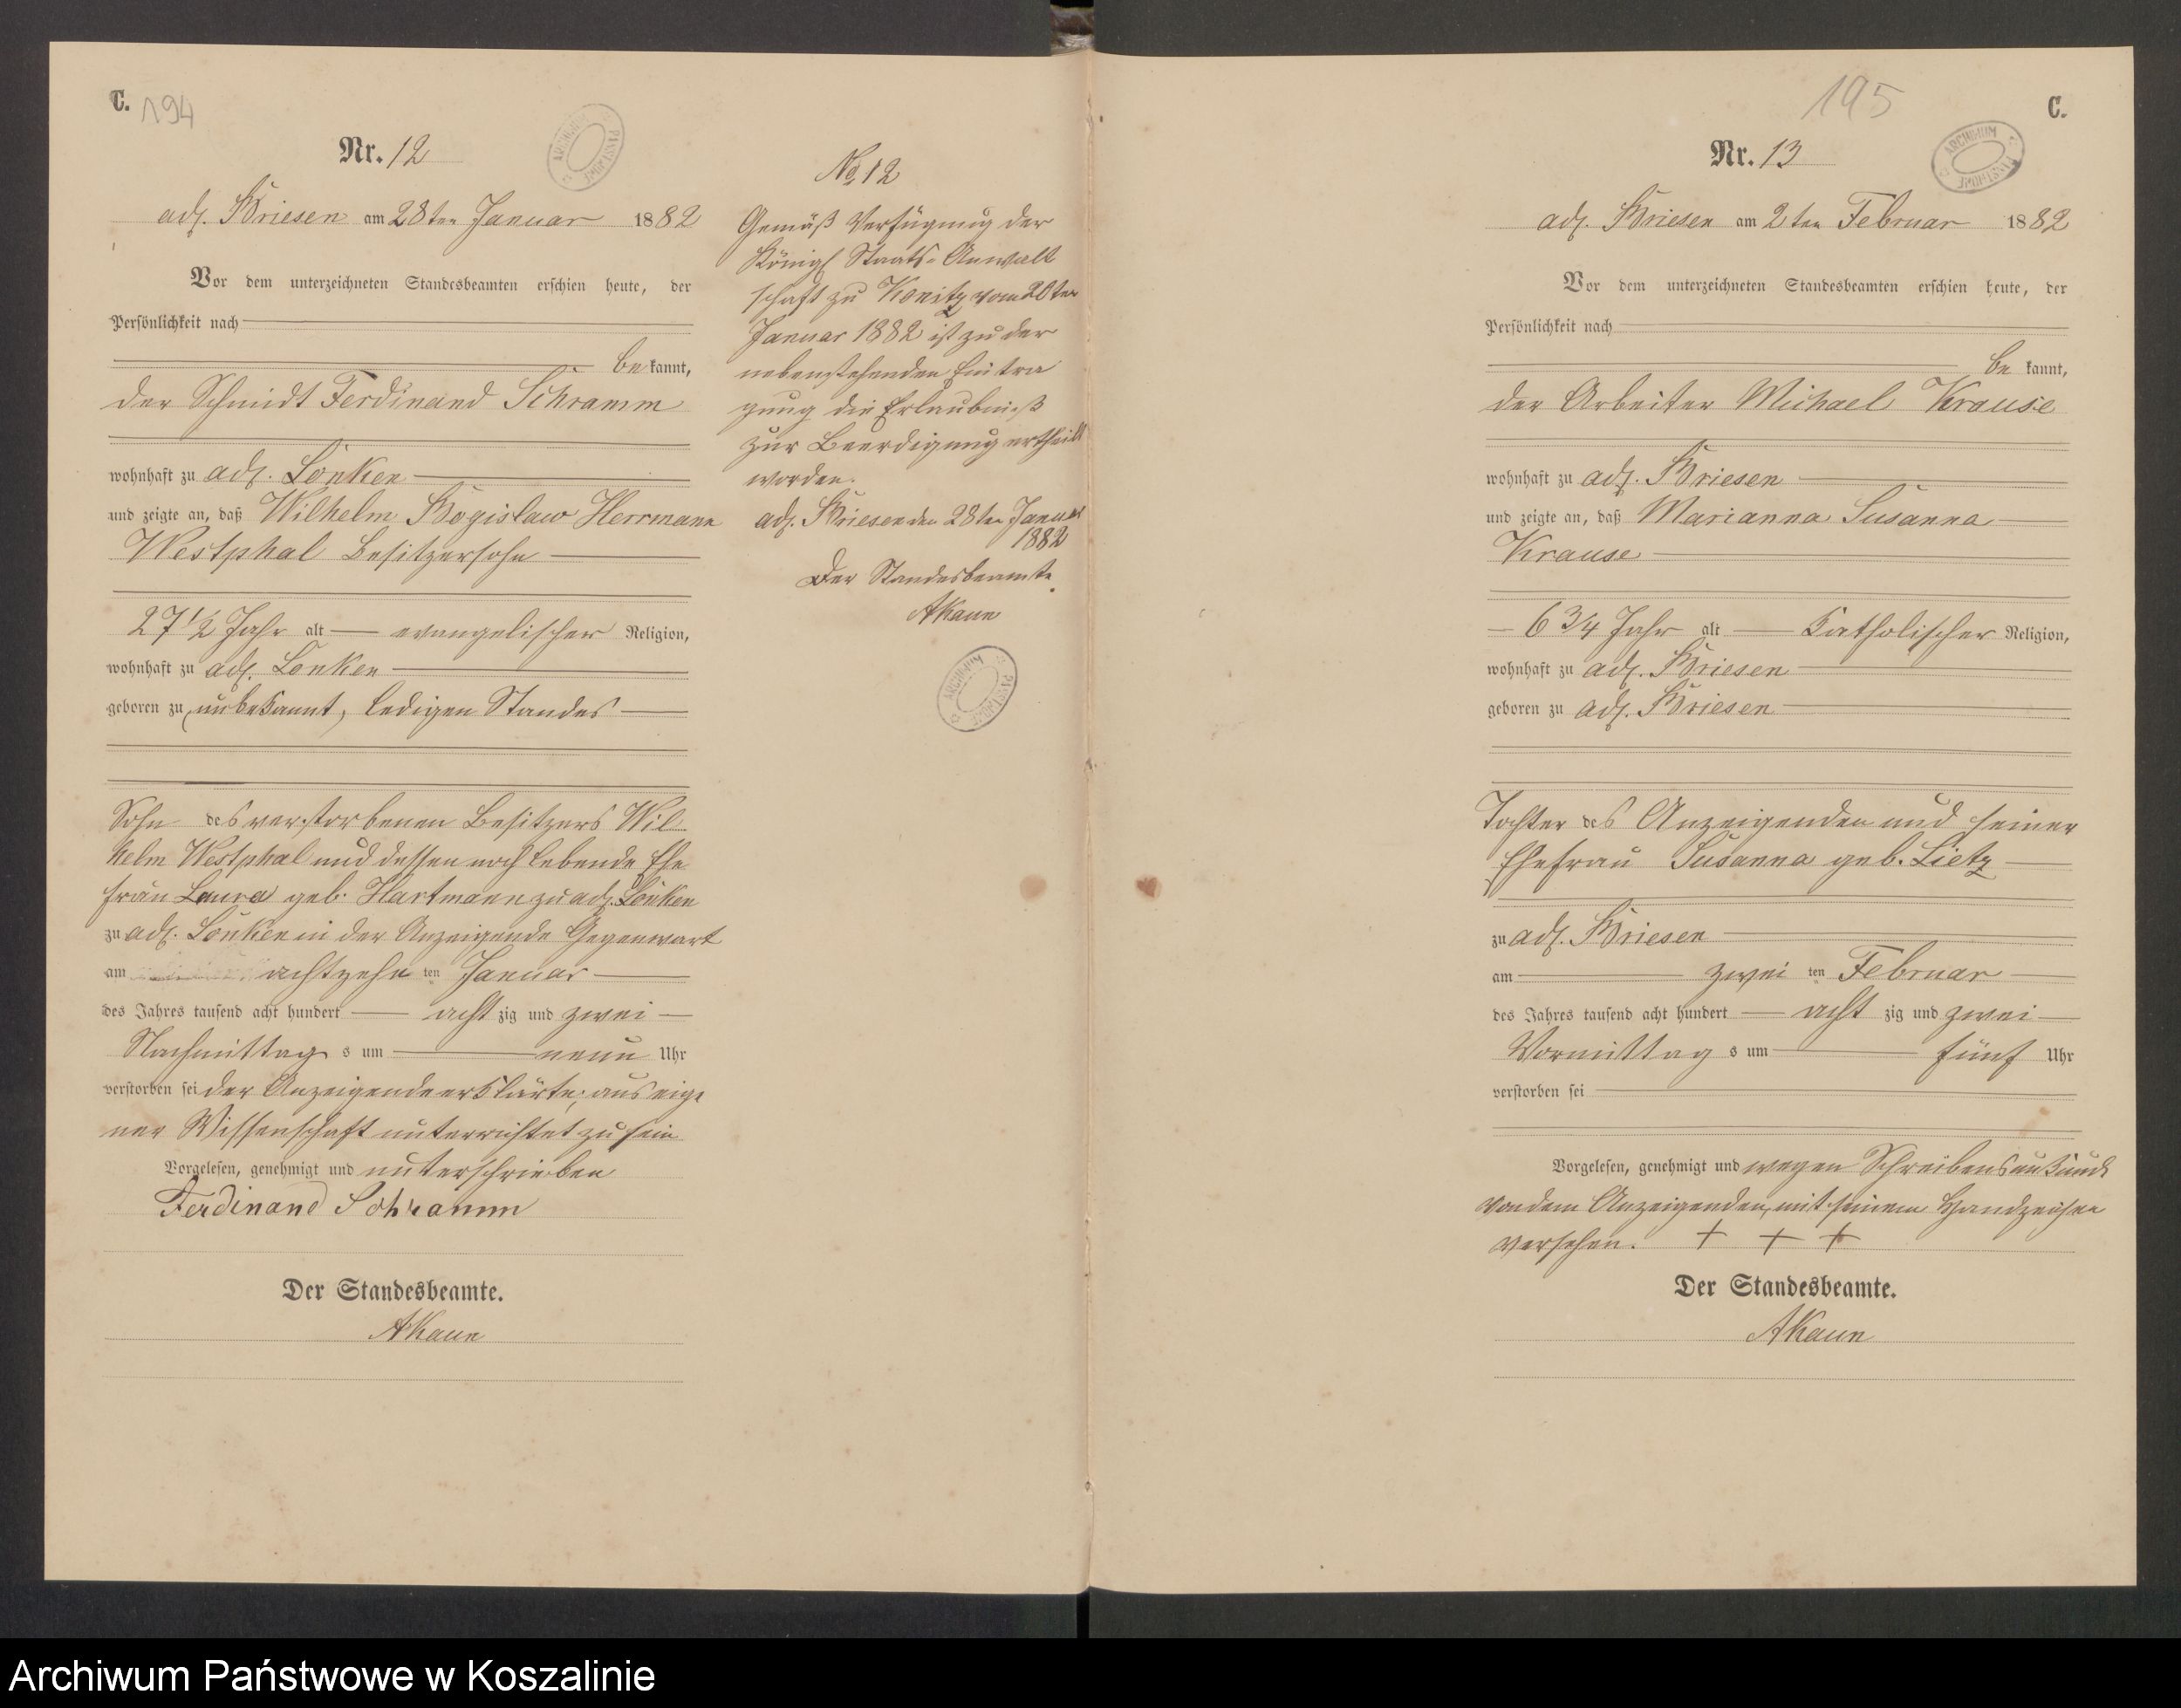 C. 194
Nr. 12
adl. Briesen am 28ten Januar 1882
Vor dem unterzeichneten Standesbeamten erschien heute, der
Persönlichkeit nach
bekannt,
der Schmidt Ferdinand Schramm
wohnhaft zu adl. Lonken
und zeigte an, daß Wilhelm Bogislaw Herrmann
Westphal Besitzersohn
27 1/2 Jahr alt evangelischer Religion,
wohnhaft zu adl. Lonken
geboren zu unbekannt, ledigen Standes
Sohn des verstorbenen Besitzers Wil
helm Westphal und dessen noch lebende Ehe
frau Laura geb. Hartmann zu adl. Lonken
zu adl. Lonken in der Anzeigende Gegenwart
am achtzehn ten Januar
des Jahres tausend acht hundert acht zig und zwei
Nachmittag s um neun Uhr
verstorben sei der Anzeigende erklärte, aus eige
ner Wissenschaft unterrichtet zu sein
Vorgelesen, genehmigt und unterschrieben
Ferdinand Schramm
Der Standesbeamte.
AKaun
No 12
Gemäß Verfügung der
Königl Staats-Anwalt
schaft zu Konitz vom 20ten
Januar 1882 ist zu der
nebenstehenden Eintra
gung die Erlaubniß
zur Beerdigung ertheilt
worden.
adl. Briesen den 28ten Januar
1882
Der Standesbeamte.
AKaun
ARCHIWUM PAŃSTWOWE
195 C.
Nr. 13
adl. Briesen am 2ten Februar 1882
Vor dem unterzeichneten Standesbeamten erschien heute, der
Persönlichkeit nach
be kannt,
der Arbeiter Michael Krause
wohnhaft zu adl. Briesen
und zeigte an, daß Marianna Susanna
Krause
6 3/4 Jahr alt Katholischer Religion,
wohnhaft zu adl. Briesen
geboren zu adl. Briesen
Tochter des Anzeigenden und seiner
Ehefrau Susanna geb. Lietz
zu adl. Briesen
am zwei ten Februar
des Jahres tausend acht hundert acht zig und zwei
Vormittag s um fünf Uhr
verstorben sei
Vorgelesen, genehmigt und wegen Schreibensunkunde
von dem Anzeigenden, mit seinem Handzeichen
versehen. + + +
Der Standesbeamte.
AKaun
Archiwum Państwowe w Koszalinie